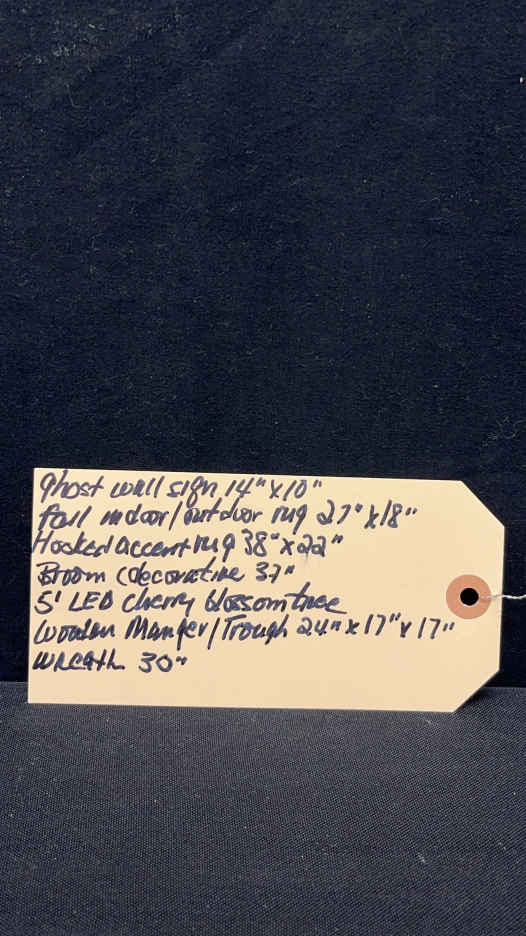 Ghost wall sign 14" x 10"
fall indoor/outdoor rug 27" x 18"
Hooked accent rug 38" x 22"
Broom (decorative 37"
5' LED cherry blossom tree
Wooden Manger/Trough 24" x 17" x 17"
Wreath 30"